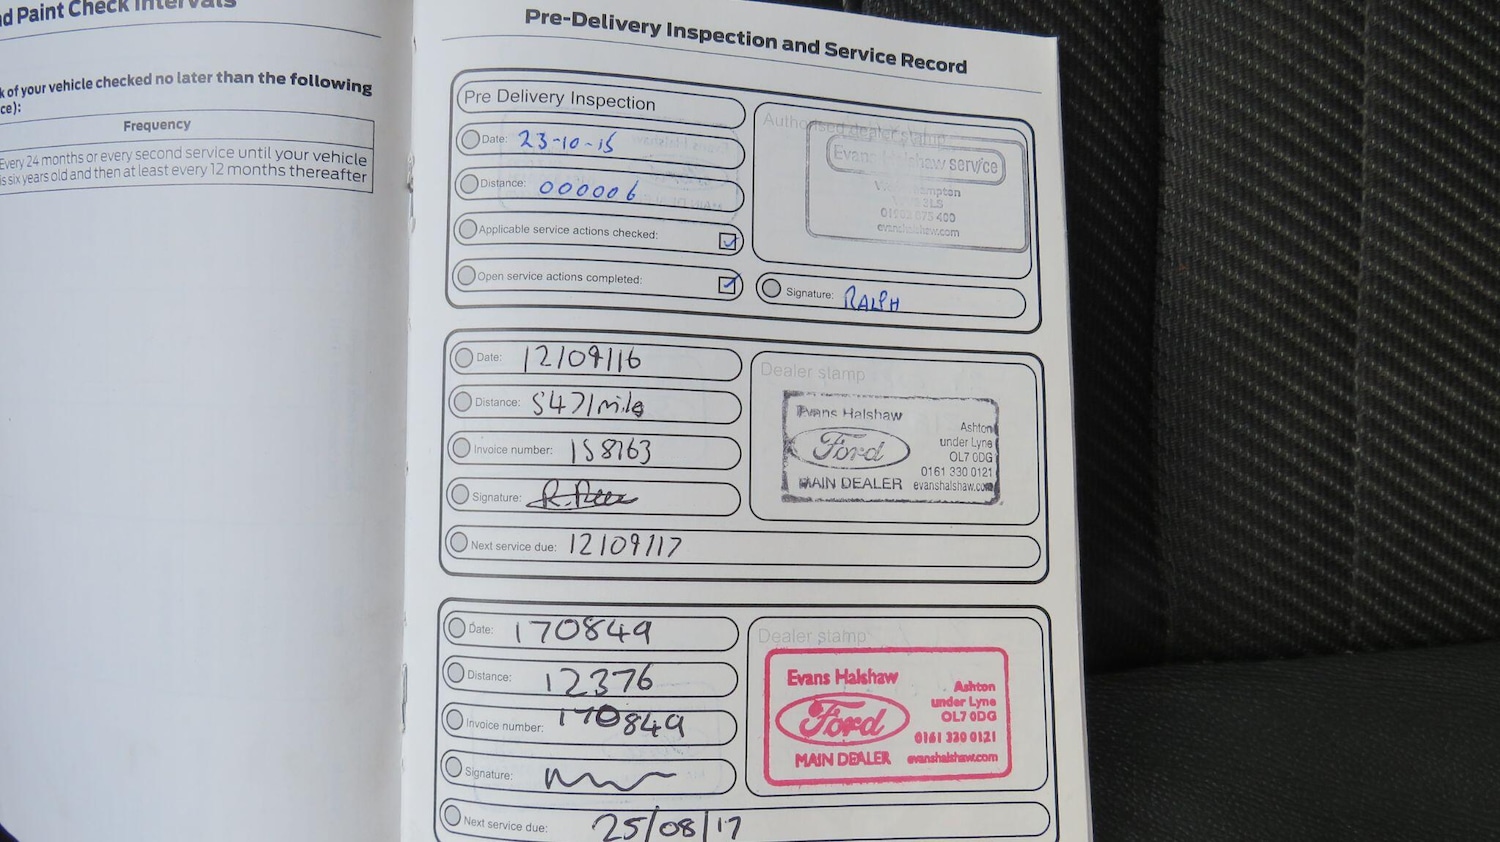 nd Paint Check Intervals
k of your vehicle checked no later than the following
ce):
Frequency
Every 24 months or every second service until your vehicle
is six years old and then at least every 12 months thereafter
Pre-Delivery Inspection and Service Record
Pre Delivery Inspection
Date: 23-10-15
Distance: 000006
Applicable service actions checked:
Open service actions completed:
Authorised dealer stamp
Evans Halshaw service
01902 875 400
evanshalshaw.com
Signature: RALPH
Date: 12/09/16
Distance: 5471 mile
Invoice number: 158763
Signature:
Next service due: 12/09/17
Dealer stamp
Evans Halshaw
Ford
MAIN DEALER
Ashton
under Lyne
OL7 0DG
0161 330 0121
evanshalshaw.com
Date: 170849
Distance: 12376
Invoice number: 170849
Signature:
Next service due: 25/08/17
Dealer stamp
Evans Halshaw
Ford
MAIN DEALER
Ashton
under Lyne
OL7 0DG
0161 330 0121
evanshalshaw.com